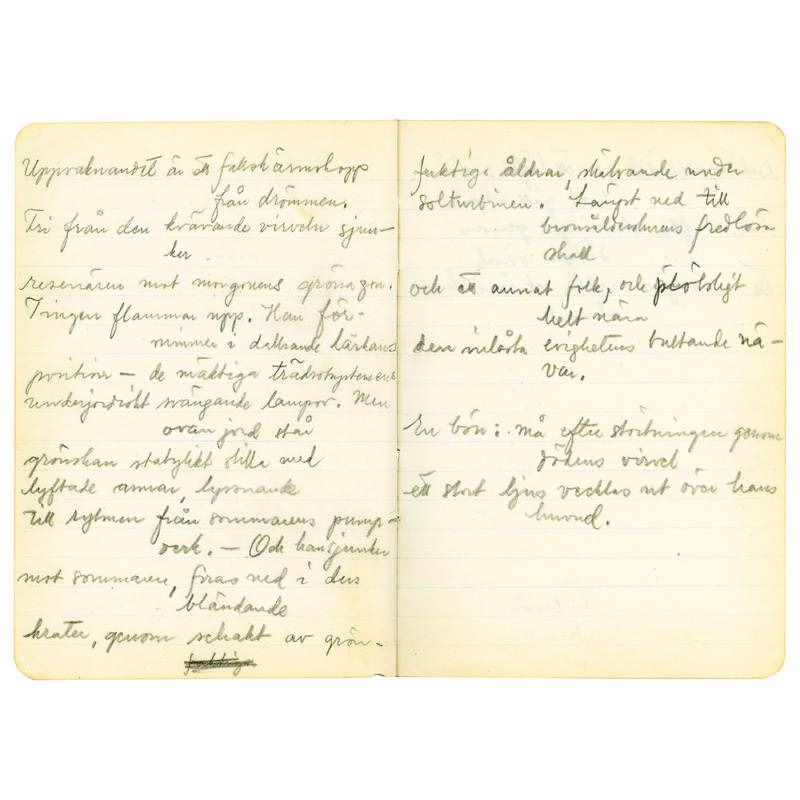 Uppvaknandet är ett fallskärmshopp
från drömmen.
Fri från den kvävande virveln sjun-
ker
resenären mot morgonens gröna zon.
Tingen flammar upp. Han för-
nimmer i dallrande lärkans
position — de mäktiga trädrotsystemens
underjordiskt svängande lampor. Men
ovan jord står
grönskan statylikt stilla med
lyftade armar, lyssnande
till rytmen från sommarens pump-
verk. — Och han sjunker
mot sommaren, firas ned i dess
bländande
krater, genom schakt av grön-
fuktiga åldrar, skälvande under
solturbinen. Längst ned till
bronsålderslurens fredlösa
skall
och ett annat folk, och plötsligt
helt nära
den inlåsta evighetens bultande nä-
var.
En bön: må efter störtningen genom
dödens virvel
ett stort ljus vecklas ut över hans
huvud.